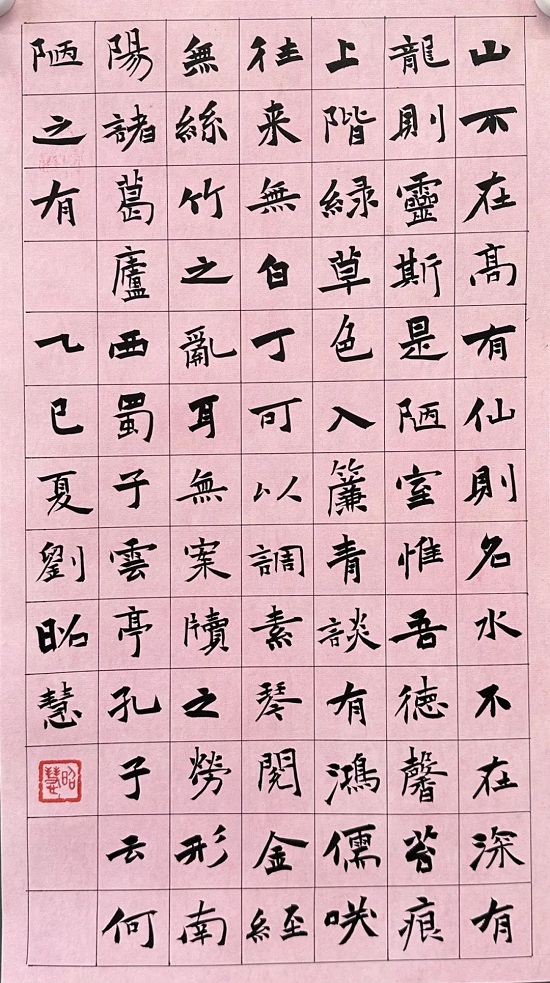 山不在高有仙則名水不在深有
龍則靈斯是陋室惟吾德馨苔痕
上階緑草色入簾青談有鴻儒咲
往来無白丁可以調素琴閲金經
無絲竹之亂耳無案牘之勞形南
陽諸葛廬西蜀子雲亭孔子云何
陋之有 乙巳夏劉昭慧
昭慧